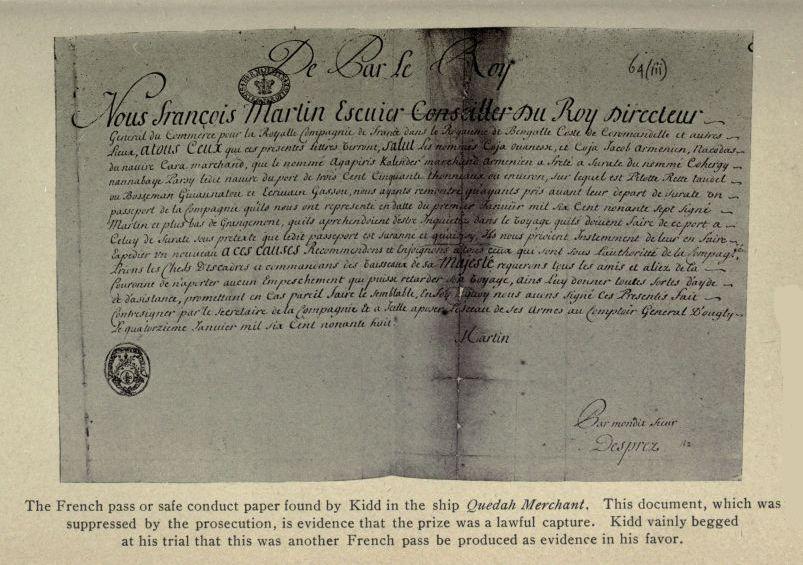 De Par Le Roy
64(iii)
Nous françois Martin Escuier Conseiller Du Roy Directeur
General du Commerce pour la Royalle Compagnie de france dans le Royaume de Bengalle Coste de Coromandelle et autres
Lieux, atous Ceux qui ces presentes lettres verront, salut Les nommés Coja ouanesse, et Coja Jacob Armenien, Nacodas
du navire Cara marchand, que le nommé Agapiris Kalender marchand Armenien a freté a Surate du nommé Cohergy
nannabaye Parsy ledit navire du port de trois Cent Cinquante thonneaux ou environ, sur lequel est Pilotte Rette
ou Bosseman et Ecrivain Gassou, nous ayants remontré quayants pris avant leur depart de Surate un
passeport de la Compagnie quils nous ont representé en datte du premier Janvier mil six Cent nonante sept signé
Martin et plus bas de Grangemont, quils aprehendoient destre Inquietez dans le voyage quils doivent faire de ce port a
Celuy de Surate sous pretexte que ledit passeport est suranné et quainsy, Ils nous prioient Instemment de leur en faire
Expedier un nouveau a ces causes Recommendons et Enjoignons a tous ceux qui sont sous L'authorité de la Compagie
Prions les Chefs D'escadres et commandans des vaisseaux de sa Majesté requerons tous les amis et aliez de la
Couronne de n'aporter aucun Empeschement qui puisse retarder son voyage, ains Luy donner toutes sortes dayde
et dasistance, promettant en Cas pareil faire le semblable, En foy de quoy nous avons signé ces Presentes fait
Contresigner par le Secretaire de la Compagnie et a Icelle aposer le sceau de ses Armes au Comptoir General D'ougly
Le quatorzieme Janvier mil six Cent nonante huit
Martin
Par mondit sieur
Desprez
The French pass or safe conduct paper found by Kidd in the ship Quedah Merchant. This document, which was
suppressed by the prosecution, is evidence that the prize was a lawful capture. Kidd vainly begged
at his trial that this was another French pass be produced as evidence in his favor.